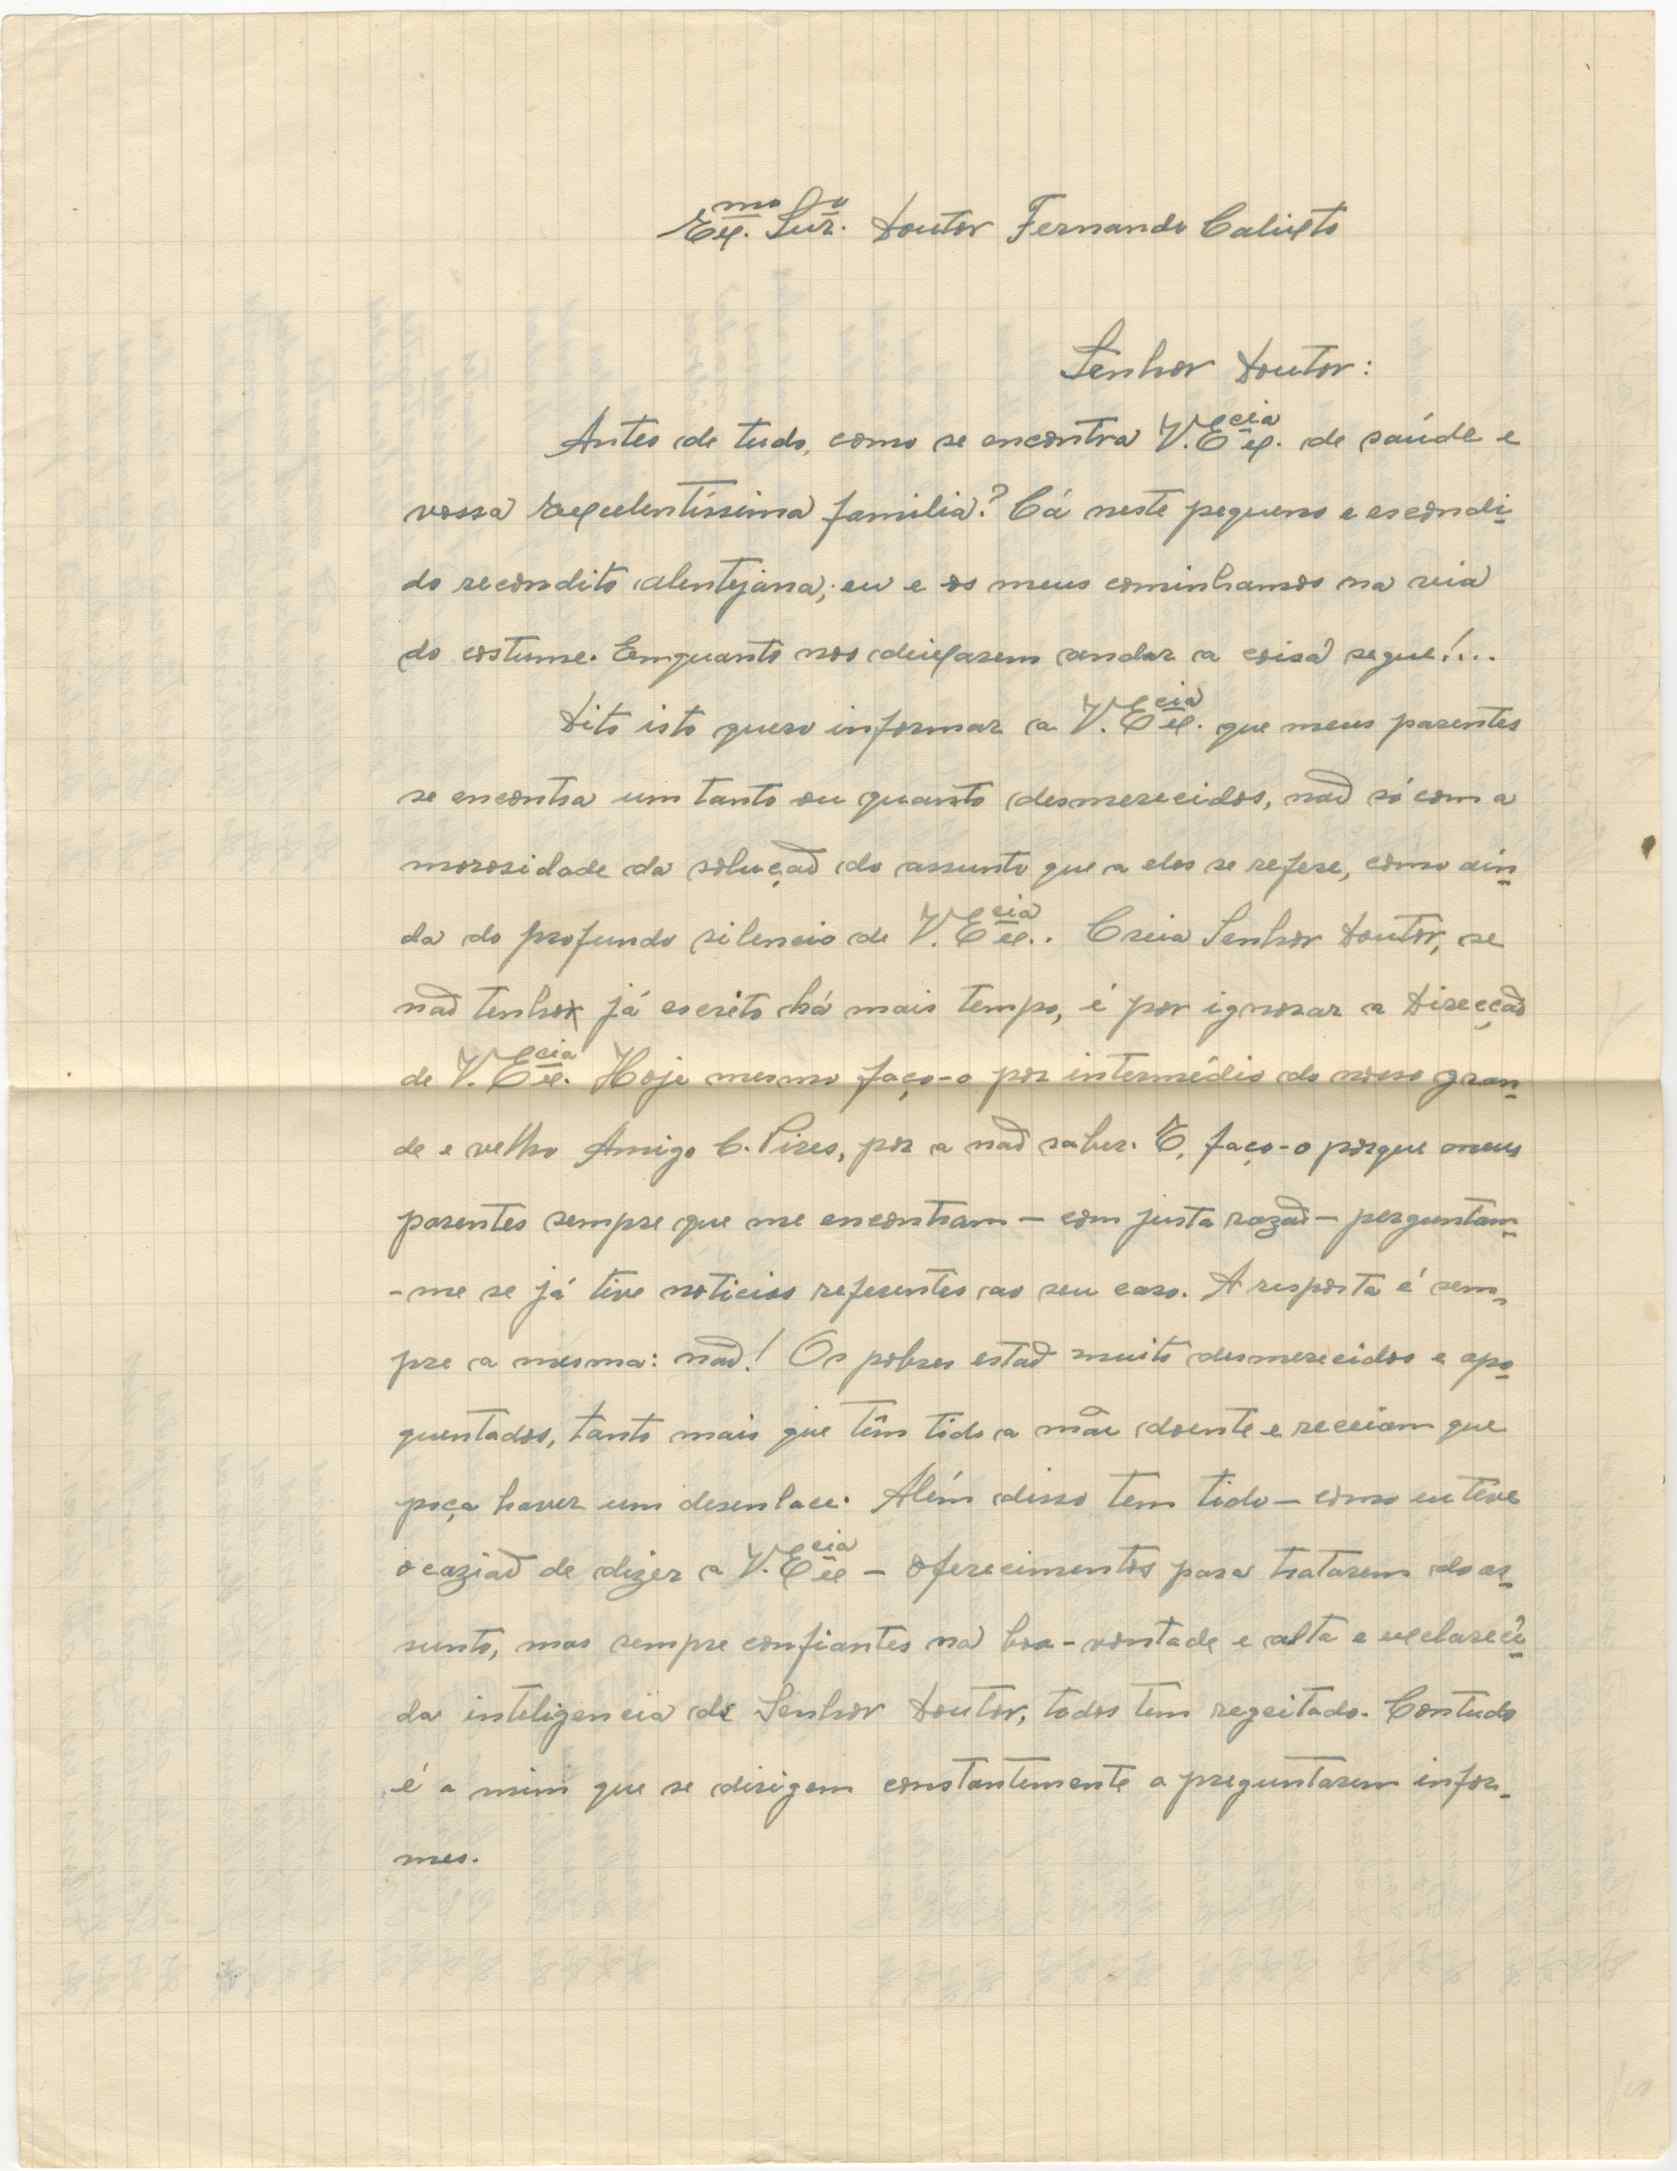 Ex.mo Snr.o Doutor Fernando Calixto
Senhor Doutor:
Antes de tudo, como se encontra V. Ex.cia de saúde e
vossa Excelentíssima familia? Cá neste pequeno e escondi-
do recondito alentejana; eu e os meus cominhamos na via
do costume. Emquanto nos deixarem andar a coisa segue!...
Dito isto quero informar a V. Ex.cia que meus parentes
se encontra um tanto ou quanto desmerecidos, não só com a
morosidade da solução do assunto que a eles se refere, como ain-
da do profundo silencio de V. Ex.cia. Creia Senhor Doutor, se
não tenho já escrito há mais tempo, é por ignorar a Direcção
de V. Ex.cia Hoje mesmo faço-o por intermédio do nosso gran-
de e velho Amigo C. Pires, por a não saber. E, faço-o porque meus
parentes sempre que me encontram — com justa razão — perguntam-
-me se já tive noticias referentes ao seu caso. A resposta é sem-
pre a mesma: não! Os pobres estão muito desmerecidos e apo-
quentados, tanto mais que têm tido a mãe doente e receiam que
poça haver um desenlace. Além disso tem tido — como eu tive
ocazião de dizer a V. Ex.cia — oferecimentos para tratarem do as-
sunto, mas sempre confiantes na boa-vontade e alta e esclareci-
da inteligencia do Senhor Doutor, todos tem regeitado. Contudo
é a mim que se dirigem constantemente a preguntarem infor-
mes.